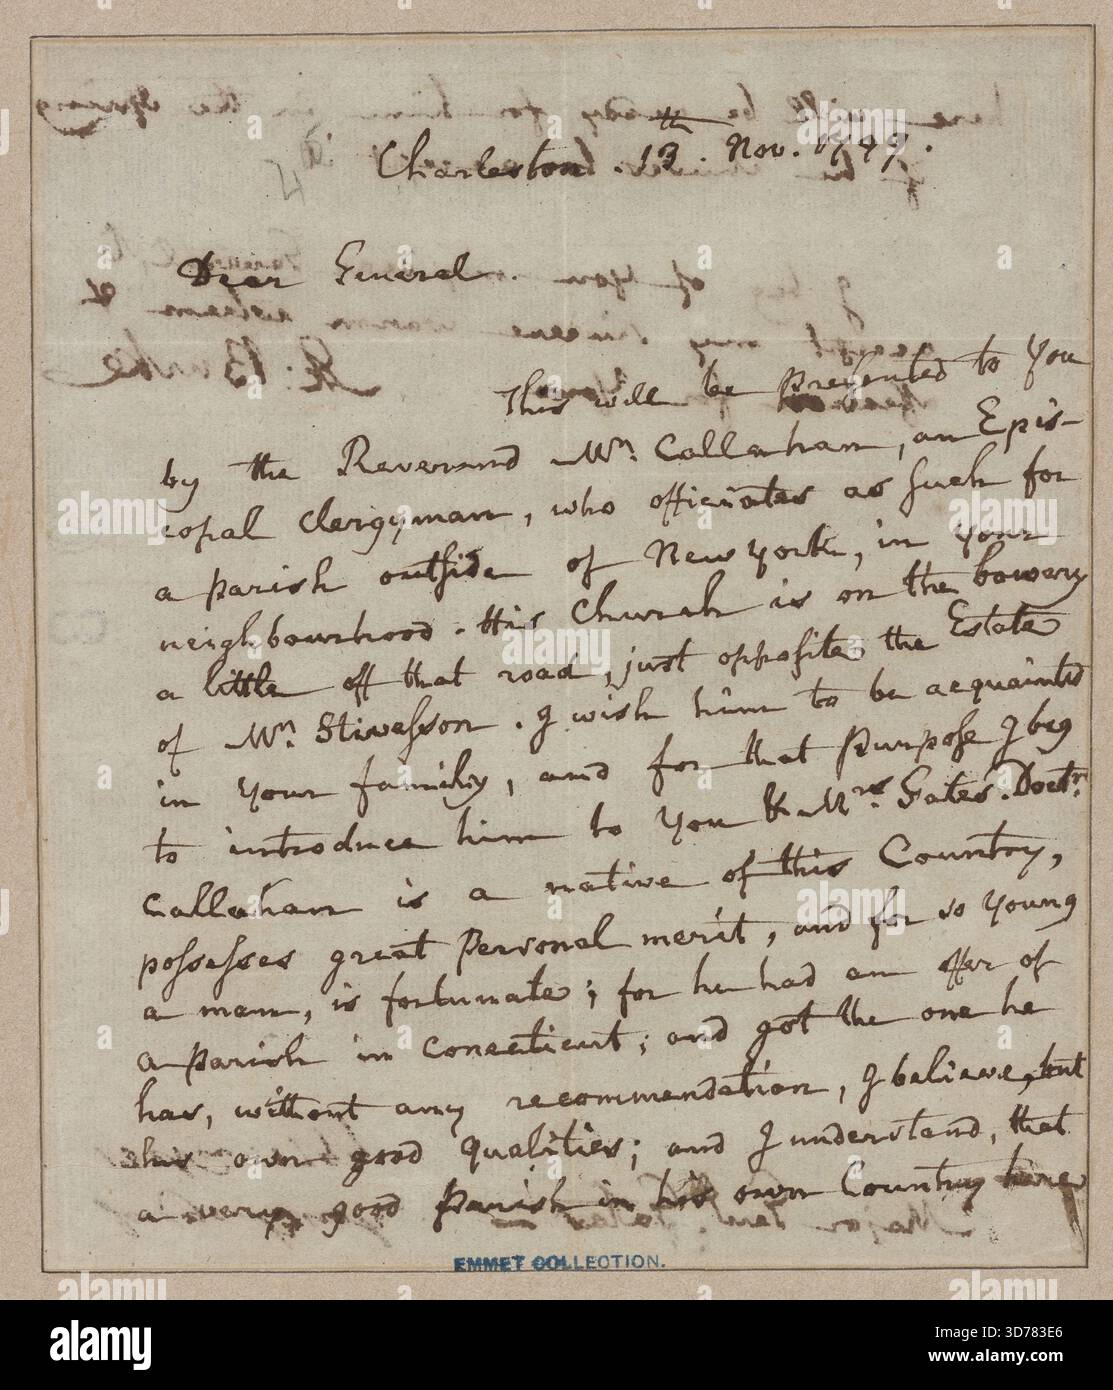 Charleston . 13th. Nov. 1799.
Dear General.
This will be presented to You
by the Reverend Mr. Callahan, an Epis-
copal Clergyman, who officiates as such for
a parish outside of New York, in Your
neighbourhood. His Church is on the bowery
a little off that road, just opposite the Estate
of Mr. Stivesson. I wish him to be acquainted
in Your family, and for that purpose I beg
to introduce him to You & Mrs. Gates. Doctr.
Callahan is a native of this Country,
possesses great Personal merit, and for so Young
a man, is fortunate; for he had an offer of
a parish in Conecticut; and got the one he
has, without any recommendation, I believe, but
his own good Qualities; and I understand, that
a very good Parish in his own Country here
EMMET COLLECTION.
alamy
Image ID: 3D783E6
www.alamy.com